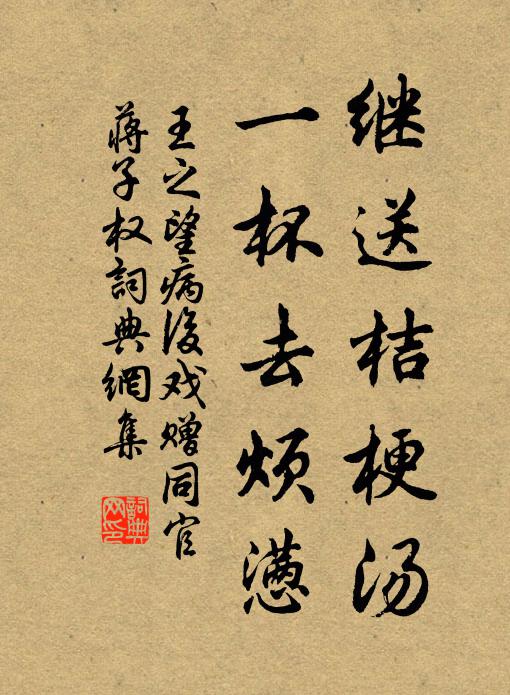 继送桔梗汤
一杯去烦懑
王之望病後戏赠同官
蒋子权詞典網集
詞典网印